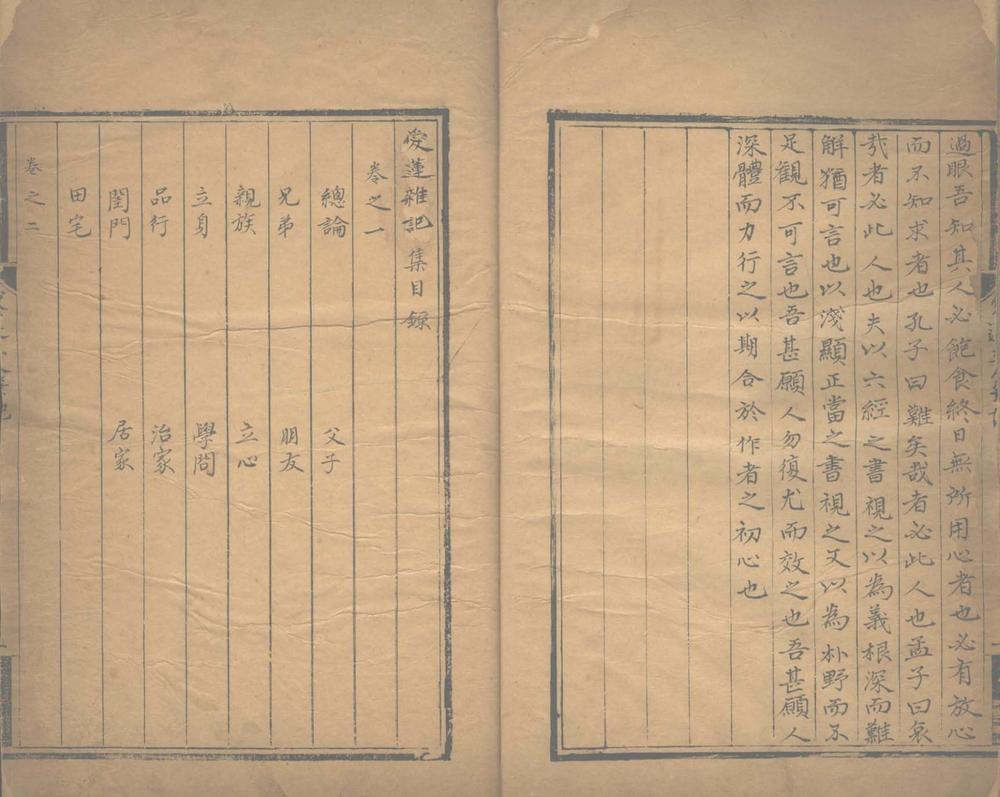 過眼吾知其人必飽食終日無所用心者也必有放心
而不知求者也孔子曰難矣哉者必此人也孟子曰哀
哉者必此人也夫以六經之書視之以為義根深而難
解猶可言也以淺顯正當之書視之又以為朴野而不
足觀不可言也吾甚願人勿復尤而效之也吾甚願人
深體而力行之以期合於作者之初心也
愛蓮雜記集目錄
卷之一
總論 父子
兄弟 朋友
親族 立心
立身 學問
品行 治家
閨門 居家
田宅
卷之二